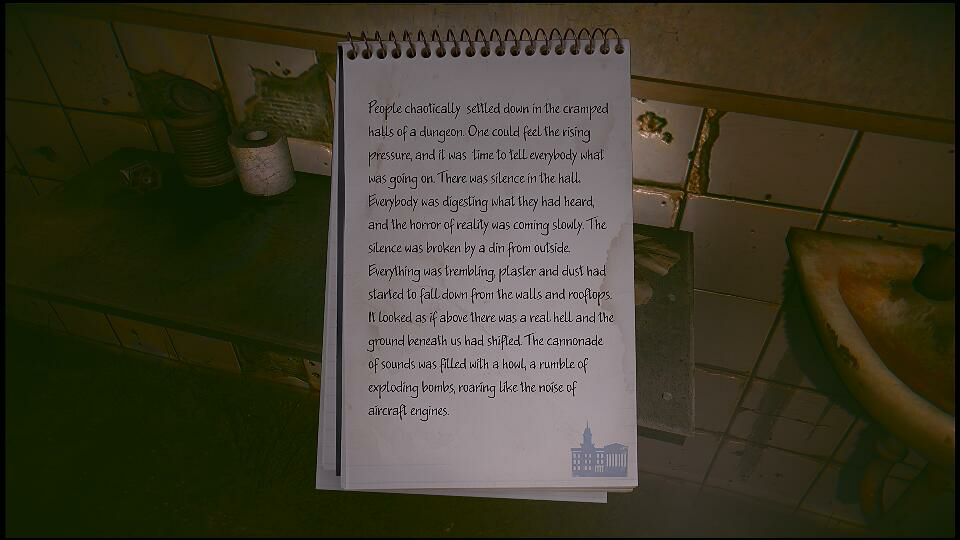 People chaotically settled down in the cramped
halls of a dungeon. One could feel the rising
pressure, and it was time to tell everybody what
was going on. There was silence in the hall.
Everybody was digesting what they had heard,
and the horror of reality was coming slowly. The
silence was broken by a din from outside.
Everything was trembling, plaster and dust had
started to fall down from the walls and rooftops.
It looked as if above there was a real hell and the
ground beneath us had shifted. The cannonade
of sounds was filled with a howl, a rumble of
exploding bombs, roaring like the noise of
aircraft engines.